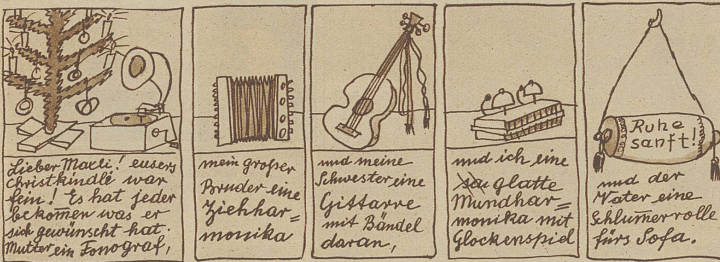 Lieber Maxli! eusers
Christkindle war
fein! Es hat jeder
bekomen was er
sich gewünscht hat.
Mutter ein Fonograf,
mein großer
Bruder eine
Ziehhar=
monika
und meine
Schwester eine
Gittarre
mit Bändel
daran,
und ich eine
sau glatte
Mundhar=
monika mit
Glockenspiel
Ruhe
sanft!
und der
Vater eine
Schlumerrolle
fürs Sofa.